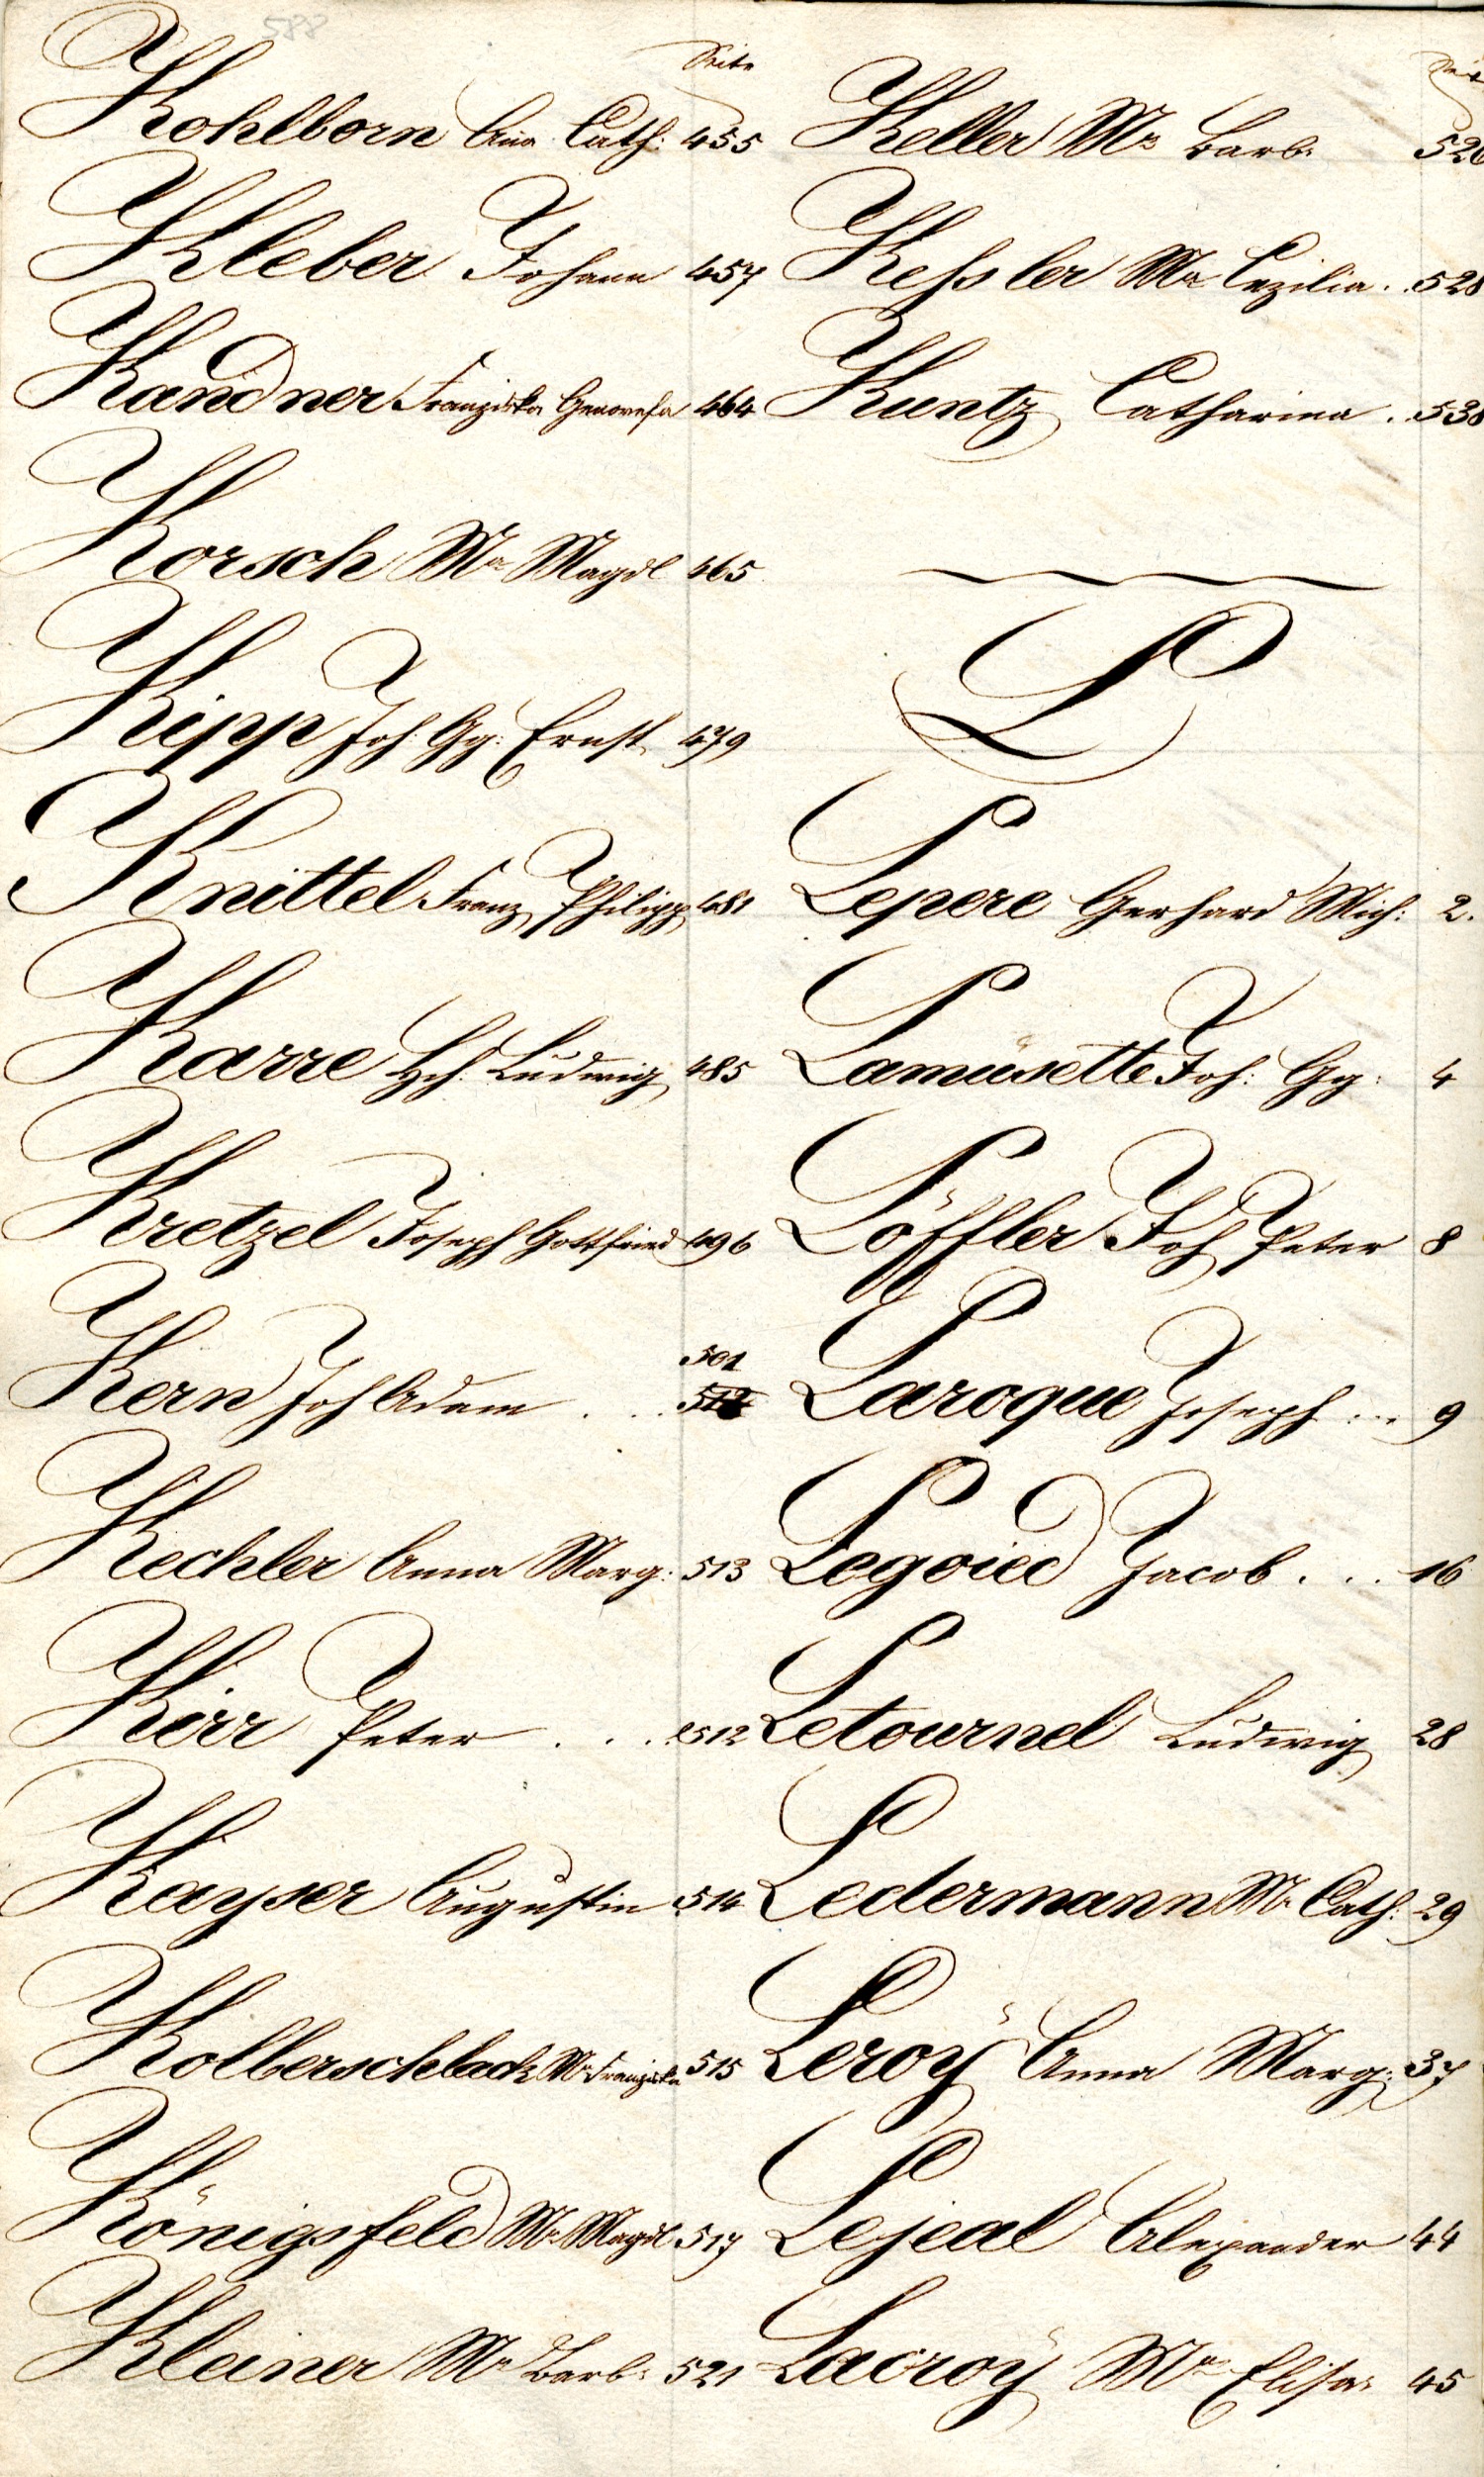 588
Seite
Kohlborn Ana Cath: 455
Kleber Johann 457
Kandner Franziska Genovefa 464
Korsch Ma Magdl 465
Kipp Joh: Gg: Ernst 479
Knittel Franz Philipp 481
Karre Hch: Ludwig 485
Kretzel Joseph Gottfried 496
501
Kern Joh Adam . . .
Kechler Anna Marg: 513
Kirr Peter . . . 512
Kayser Augustin 514
Kolberschlack Ma Franziska 515
Königsfeld Ma Magdl 517
Kleiner Ma Barb: 521
Keller Ma Barb: 526
Kessler Ma Cezilia . . 528
Kuntz Catharina . . 538
L
Lepere Gerhard Mich: 2.
Lamüsette Joh: Gg: 4
Löffler Joh Peter 8
Laroque Joseph ... 9
Legoied Jacob . . . 16
Letournel Ludwig 28
Ledermann Ma Cath: 29
Leroÿ Anna Marg: 37
Lejeal Alexander 44
Lacroÿ Ma Elisa: 45